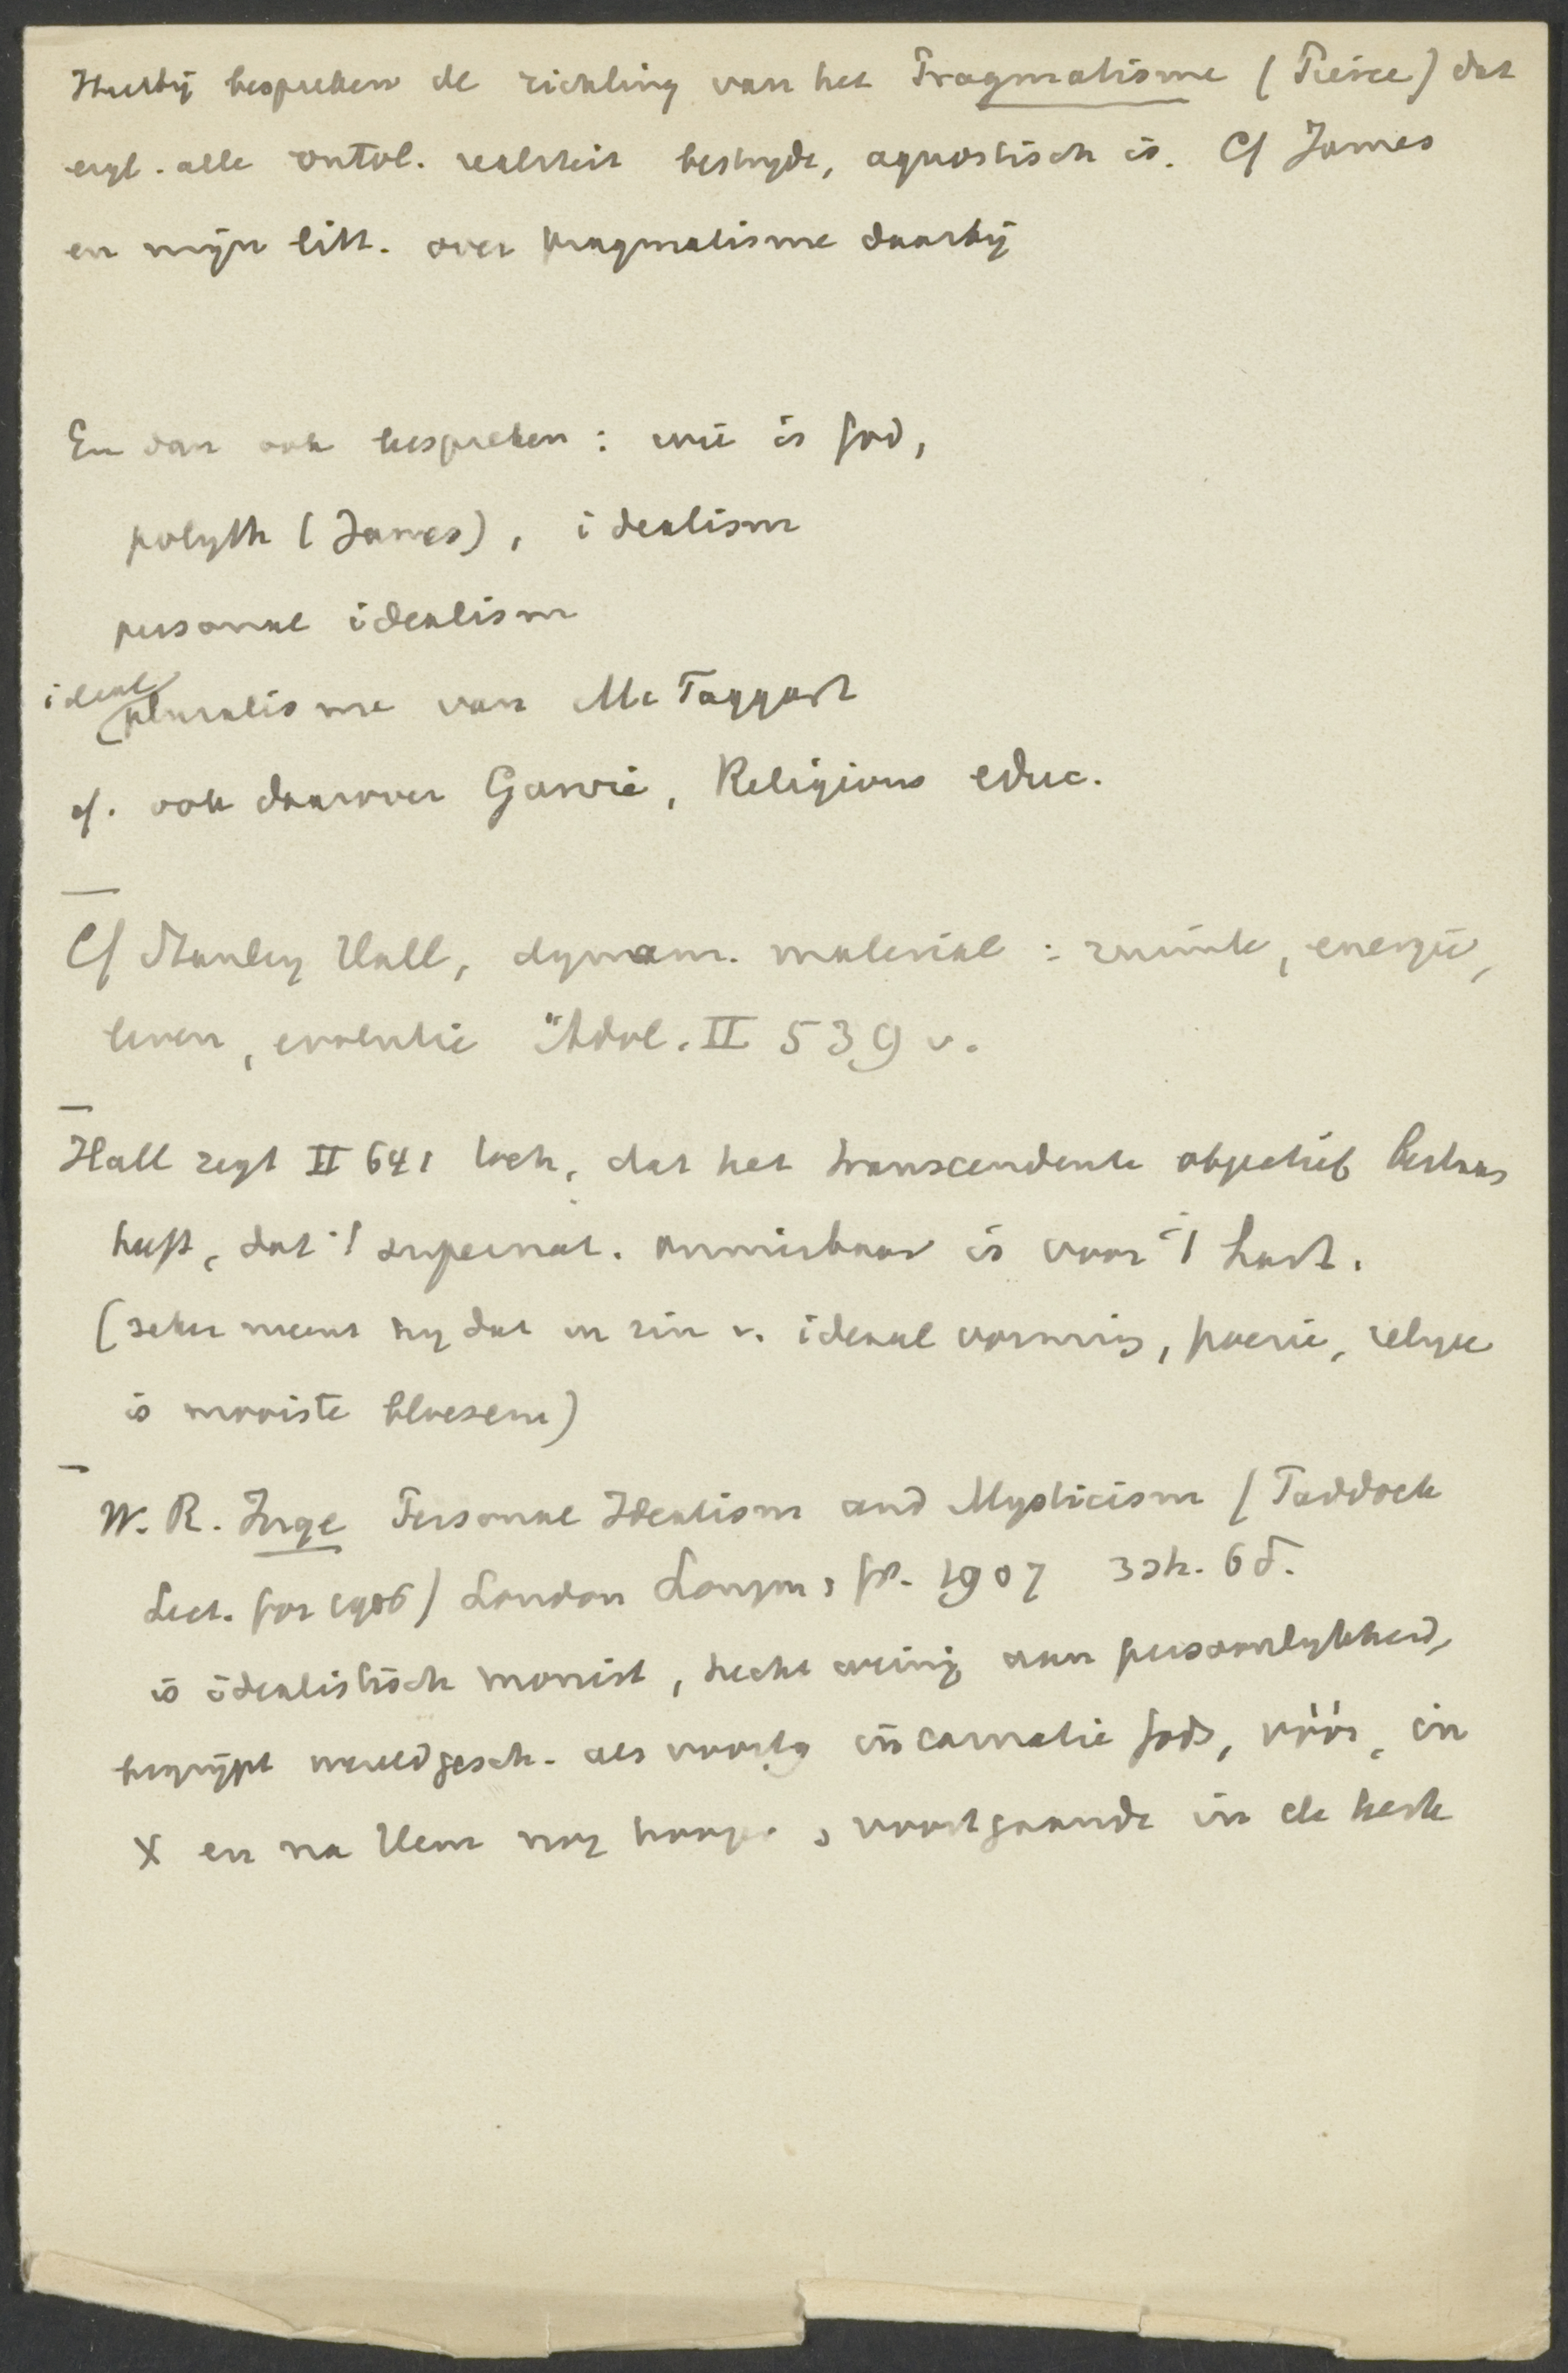 Hierbij bespreken de richting van het Pragmatisme (Peirce) dat
eigl. alle ontol. realiteit bestrijdt, agnostisch is. Cf James
en mijn litt. over pragmatisme daarbij
En dan ook bespreken: wie is God,
polyth (James), idealism
personal idealism
ideal pluralisme van Mc Taggart
cf. ook daarover Garvie, Religious educ.
Cf Stanley Hall, dynam. material: ruimte, energie,
leven, evolutie Adol. II 539 v.
Hall zegt II 641 toch, dat het transcendente objectief bestaan
heeft, dat 't supernat. onmisbaar is voor 't hart.
(zeker meent hij dat in zin v. ideaal vorming, poezie, religie
is mooiste bloesem)
W. R. Inge Personal Idealism and Mysticism (Paddock
Lect. for 1906) London Longm, gr. 1907 3sh. 6d.
is idealistisch monist, hecht weinig aan persoonlijkheid,
begrijpt wereldgesch. als voortg incarnatie Gods, vóór, in
X en na Hem nog , voortgaande in de kerk